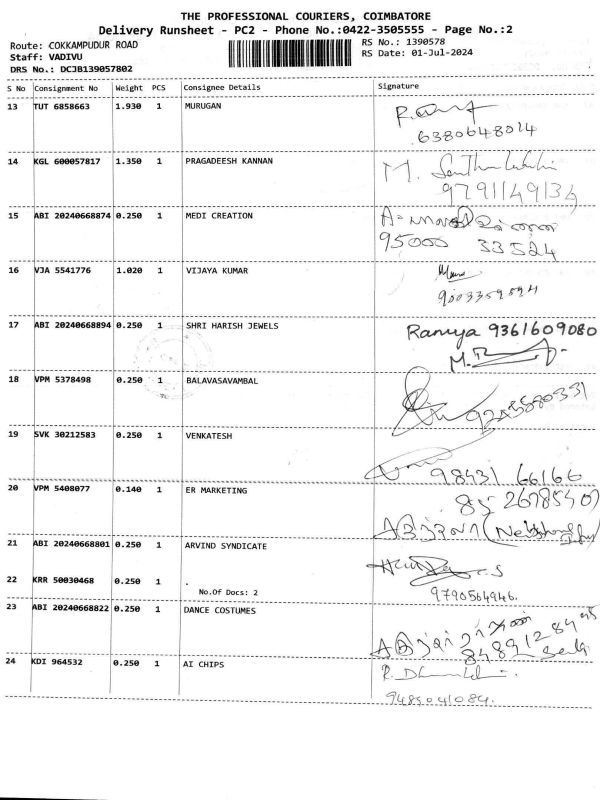 THE PROFESSIONAL COURIERS, COIMBATORE
Delivery Runsheet - PC2 - Phone No.:0422-3505555 - Page No.:2
Route: COKKAMPUDUR ROAD
RS No.: 1390578
Staff: VADIVU
RS Date: 01-Jul-2024
DRS No.: DCJB139057802
S No Consignment No Weight PCS Consignee Details Signature
13 TUT 6858663 1.930 1 MURUGAN
6380648024
14 KGL 600057817 1.350 1 PRAGADEESH KANNAN
M.
9791149134
15 ABI 20240668874 0.250 1 MEDI CREATION
95000 33524
16 VJA 5541776 1.020 1 VIJAYA KUMAR
17 ABI 20240668894 0.250 1 SHRI HARISH JEWELS
Ramya 9361609080
18 VPM 5378498 0.250 1 BALAVASAVAMBAL
19 SVK 30212583 0.250 1 VENKATESH
98431 66166
20 VPM 5408077 0.140 1 ER MARKETING
21 ABI 20240668801 0.250 1 ARVIND SYNDICATE
22 KRR 50030468 0.250 1 .
No.Of Docs: 2
9790564946.
23 ABI 20240668822 0.250 1 DANCE COSTUMES
24 KDI 964532 0.250 1 AI CHIPS
9489041084.